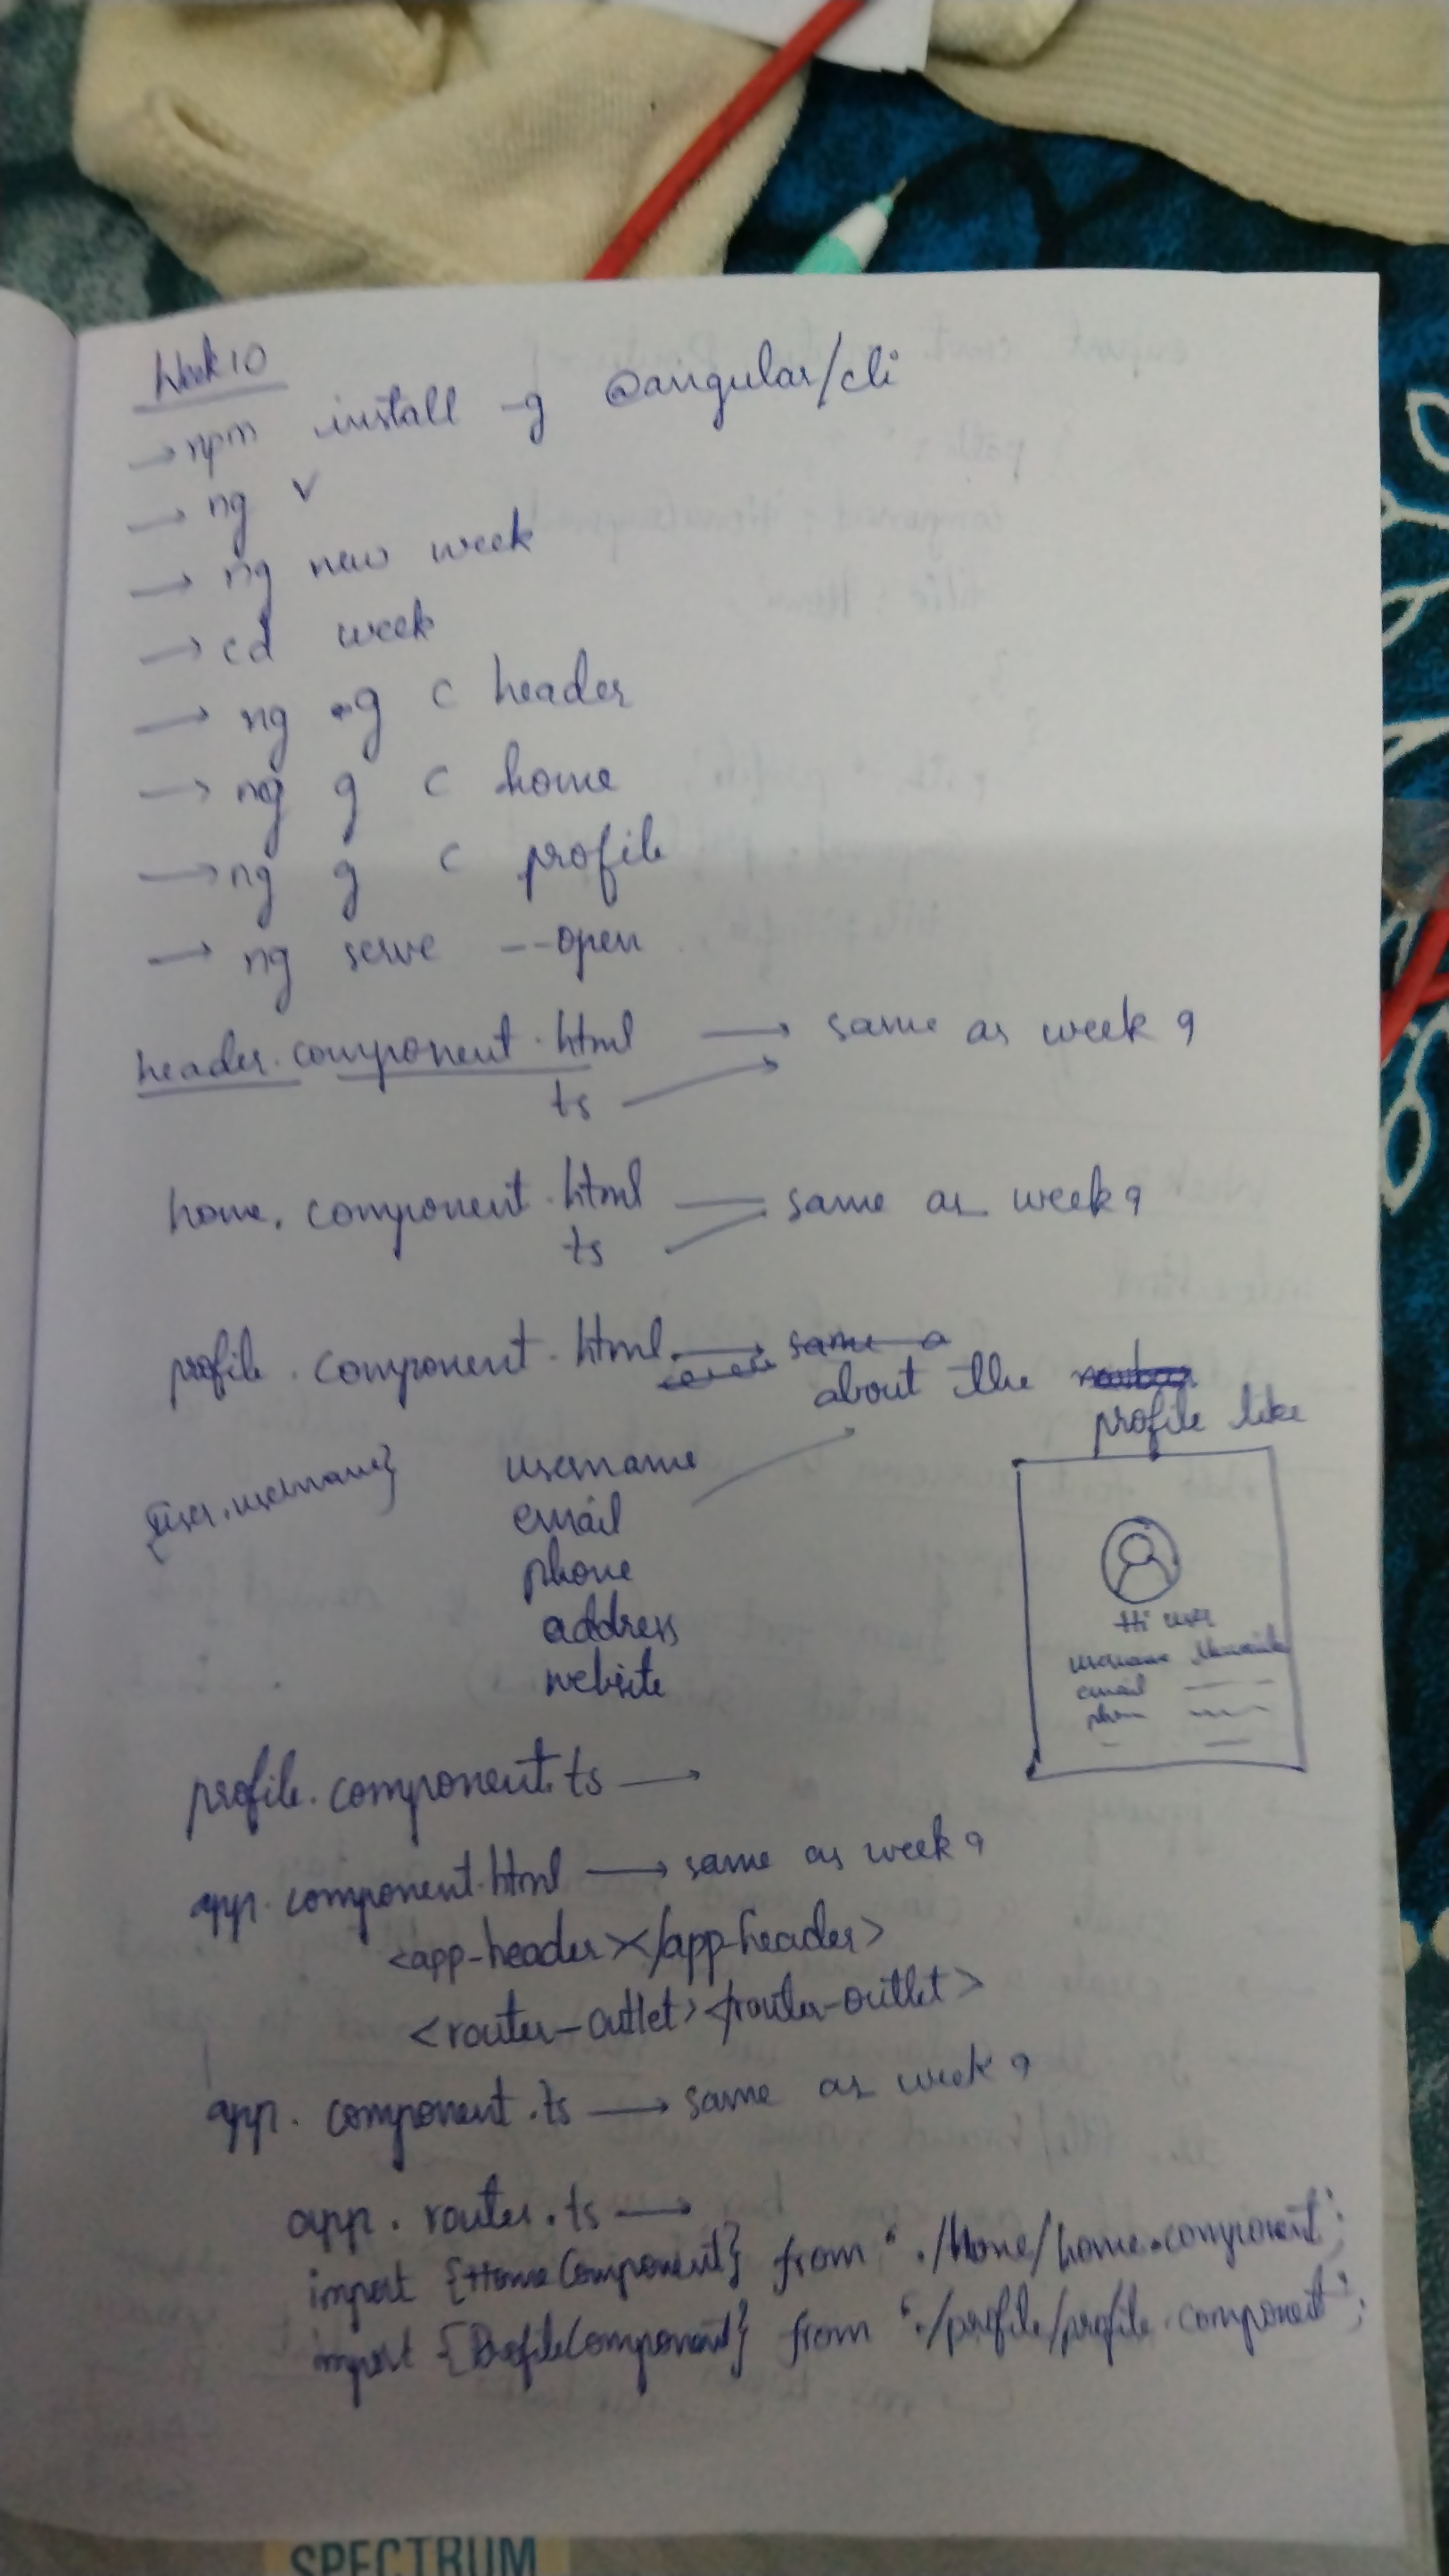 Week 10
→ npm install -g @angular/cli
→ ng v
→ ng new week
→ cd week
→ ng g c header
→ ng g c home
→ ng g c profile
→ ng serve --open
header.component.html → same as week 9
ts
home.component.html — same as week 9
ts
profile.component.html → same a
about the
profile like
{user.username}
username
email
phone
address
website
Hi user
username
email
phone
profile.component.ts →
app.component.html → same as week 9
<app-header></app-header>
<router-outlet></router-outlet>
app.component.ts → same as week 9
app.router.ts →
import {HomeComponent} from './home/home.component';
import {ProfileComponent} from './profile/profile.component';
SPECTRUM